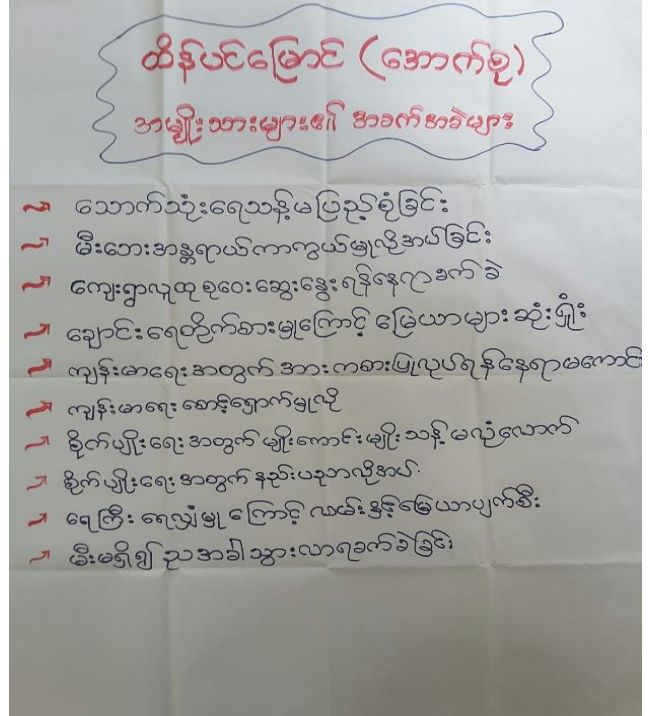 ထိန်ပင်မြောင် (အောက်စု)
အမျိုးသားများ၏ အခက်အခဲများ
သောက်သုံးရေသန့်မပြည့်စုံခြင်း
မီးဘေးအန္တရာယ်ကာကွယ်မှုလိုအပ်ခြင်း
ကျေးရွာလူထုစုဝေးဆွေးနွေးရန်နေရာခက်ခဲ
ချောင်းရေတိုက်စားမှုကြောင့် မြေယာများဆုံးရှုံး
ကျန်းမာရေးအတွက် အားကစားပြုလုပ်ရန်နေရာမကောင်း
ကျန်းမာရေးစောင့်ရှောက်မှုလို
စိုက်ပျိုးရေးအတွက် မျိုးကောင်းမျိုးသန့် မလုံလောက်
စိုက်ပျိုးရေးအတွက် နည်းပညာလိုအပ်
ရေကြီး ရေလျှံမှုကြောင့် လမ်းနှင့်မြေယာပျက်စီး
မီးမရှိ၍ ညအခါသွားလာရခက်ခဲခြင်း